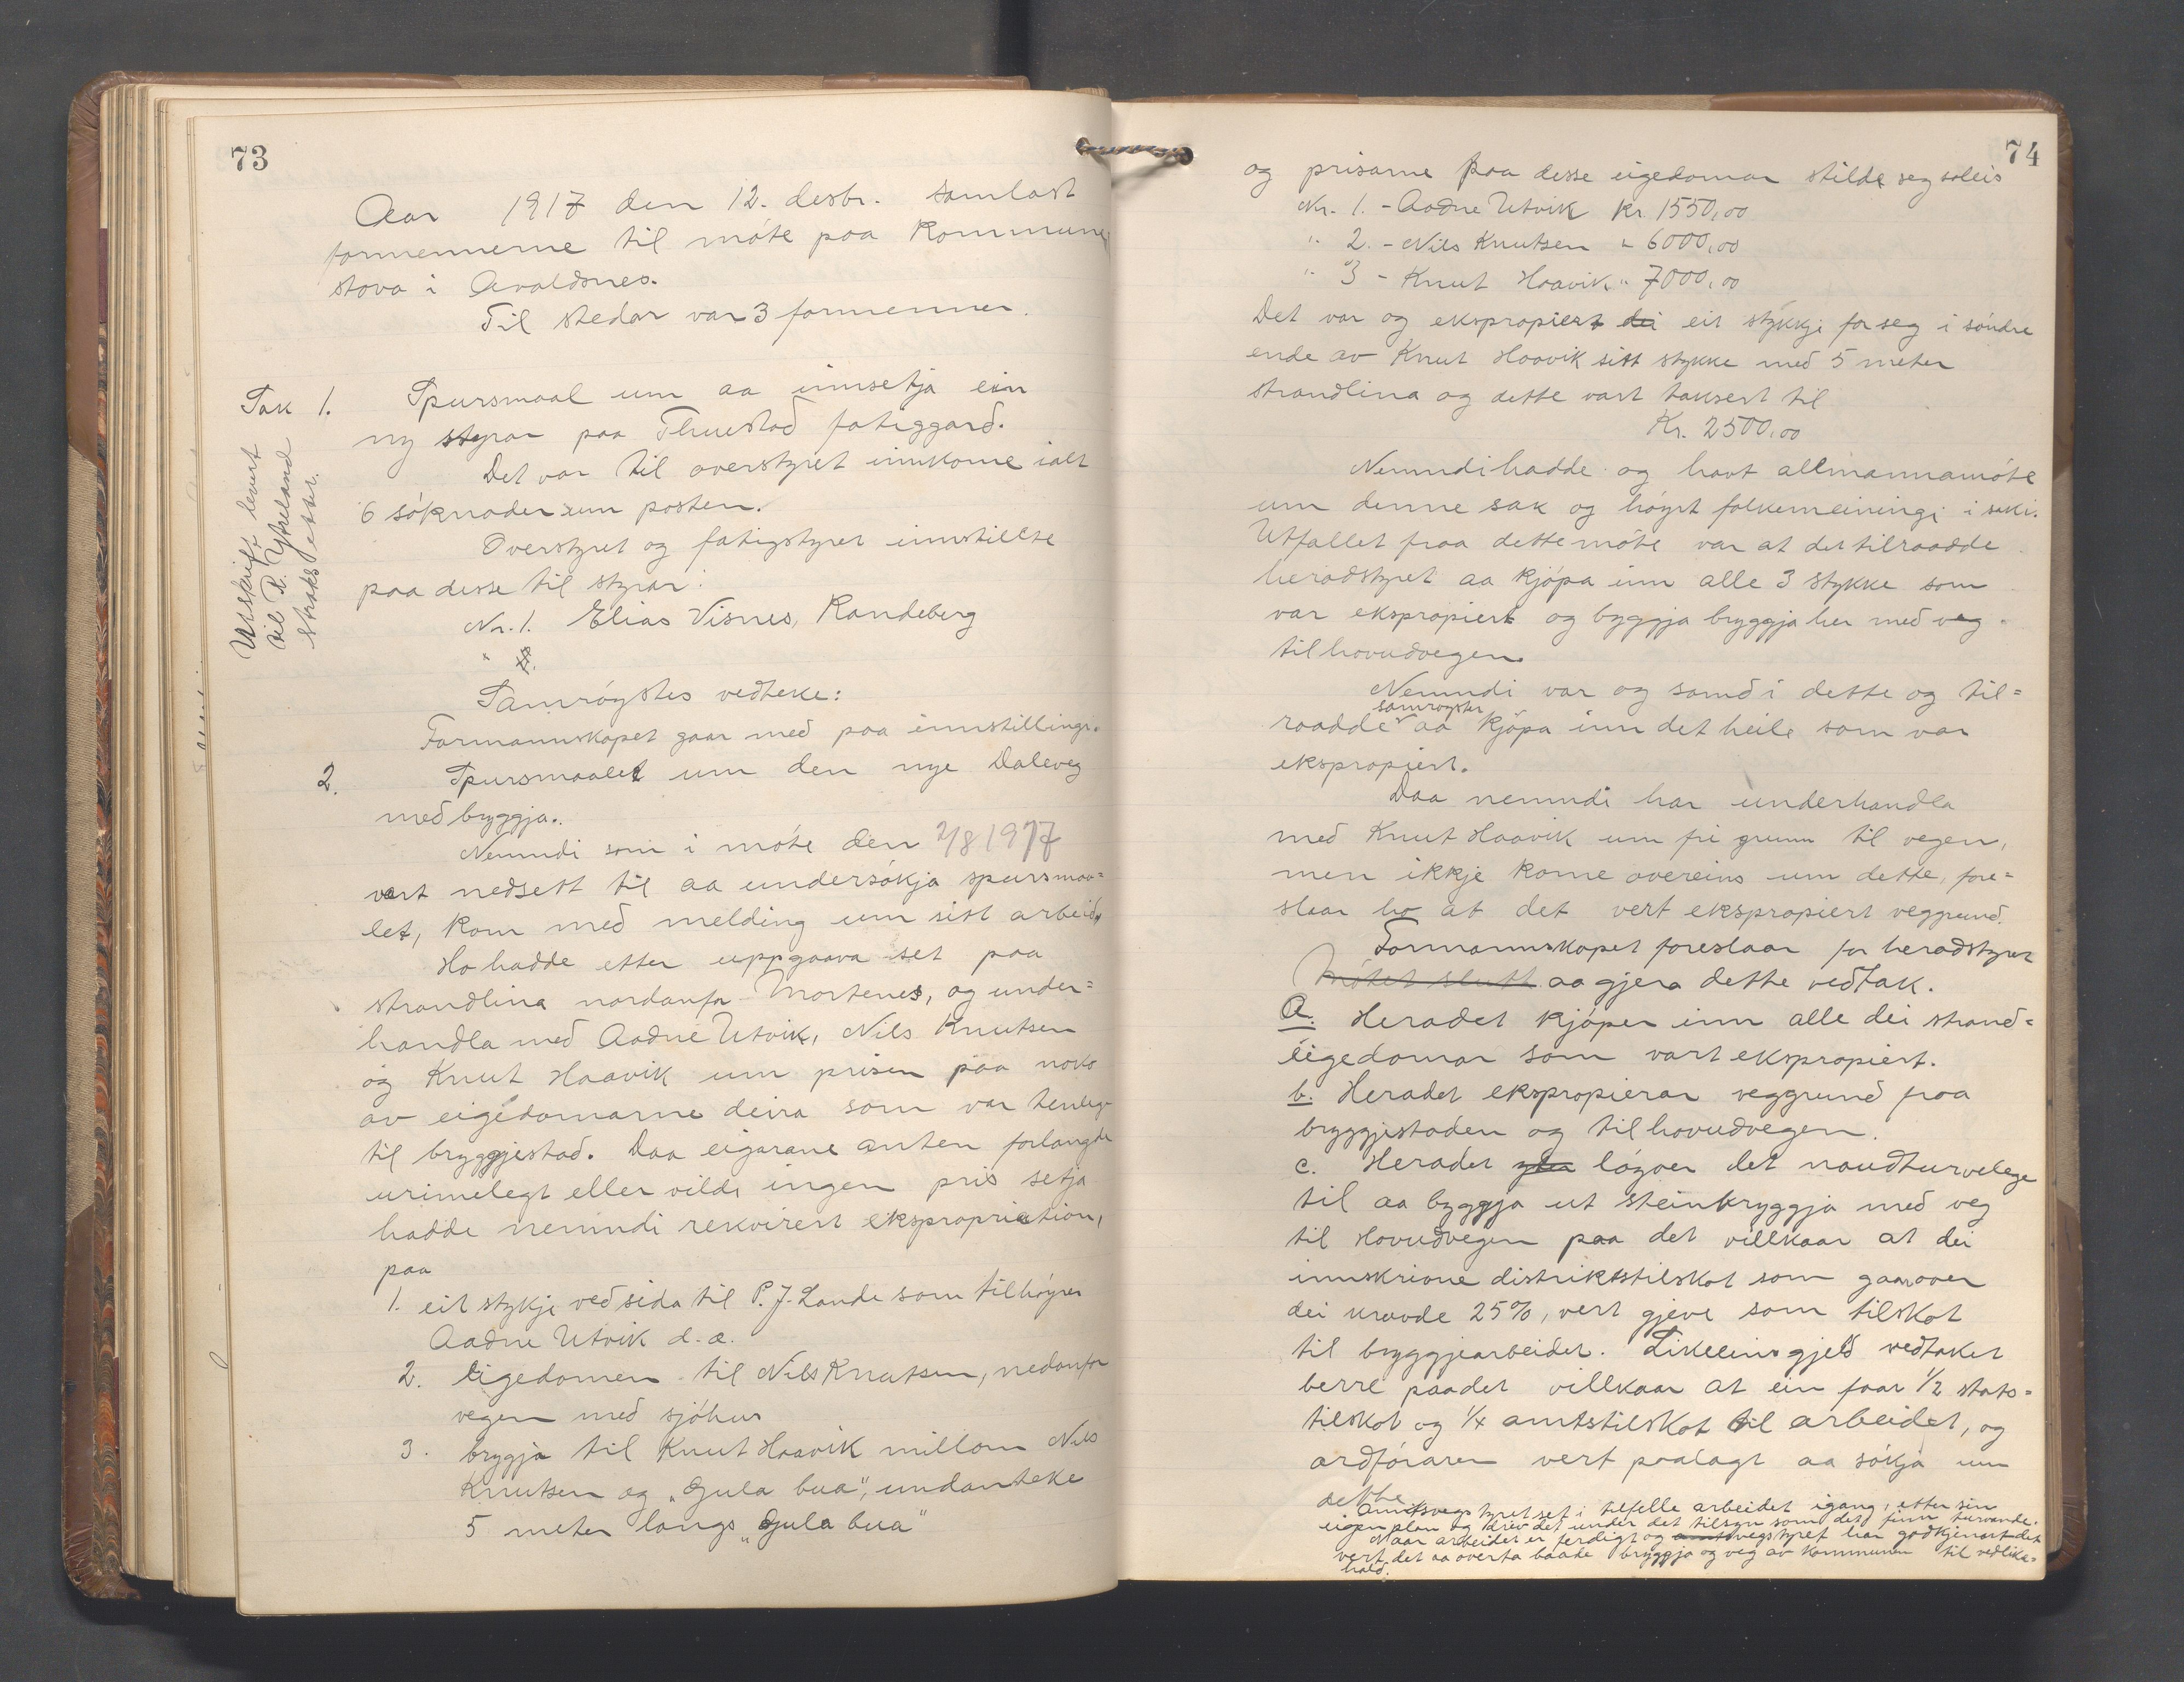 73
Aar 1917 den 12. desbr. samlast
formennerne til móte paa Kommune
stova i Avaldsnes.
Til stedar var 3 formenner.
Sak 1. Spursmaal um aa innsetja ein
ny styrar paa Thuestad fatiggard.
Det var til overstyret innkome ialt
6 sóknader um posten.
Overstyret og fatigstyret innstillte
paa desse til styrar:
Nr. 1. Elias Visnes, Randeberg
Utskrift levert
til R. Ytreland
straks etter.
Samróystes vedteke:
Formannskapet gaar med paa innstillingi.
2. Spursmaalet um den nye Daleveg
med bryggja.
Nemndi som i móte den 2/8 1917
vart nedsett til aa undersókja spursmaa=
let, kom med melding um sitt arbeid.
Ho hadde etter uppgaava set paa
strandlina nordanfor Mortenes, og under=
handla med Aadne Utvik, Nils Knutsen
og Knut Haavik um prisen paa noko
av eigedomarne deira som var tenleg
til bryggjestad. Daa eigarane anten forlangde
urimelegt eller vilde ingen pris setja
hadde nemndi rekvirert ekspropriation,
paa
1. eit stykje ved sida til P. J. Lande som tilhóyrer
Aadne Utvik d. æ.
2. Eigedomen til Nils Knutsen, nedanfor
vegen med sjóhus
3. bryggja til Knut Haavik millom Nils
Knutsen og „Gula bua", undanteke
5 meter langs „Gula bua"
74
og prisarne paa desse eigedomar stilde seg soleis
Nr. 1. - Aadne Utvik Kr. 1550,00
" 2. - Nils Knutsen " 6000,00
" 3 - Knut Haavik " 7000,00
Det var og ekspropiert dei eit stykkje for seg i sóndre
ende av Knut Haavik sitt stykke med 5 meter
strandlina og dette vart taksert til
Kr. 2500,00
Nemndi hadde og havt allmannamóte
um denne sak og hóyrt folkemeiningi i saki.
Utfallet fraa dette móte var at det tilraadde
heradstyret aa kjópa inn alle 3 stykke som
var ekspropiert og byggja bryggja her med veg
til hovudvegen.
Nemndi var og samd i dette og til=
samróystes
raadde aa kjópa inn det heile som var
ekspropiert.
Daa nemndi har underhandla
med Knut Haavik um fri grunn til vegen,
men ikkje kome overeins um dette, fore=
slaar ho at det vert ekspropiert veggrund.
Formannskapet foreslaar for heradstyret
Mótet slutt aa gjera dette vedtak.
a. Heradet kjóper inn alle dei strand=
eigedomar som vart ekspropiert.
b. Heradet ekspropierar veggrund fraa
bryggjestaden og til hovudvegen.
c. Heradet lóyver det naudturvelege
til aa byggja ut steinbryggja med veg
til Hovudvegen paa det villkaar at dei
innskrivne distriktstilskot som gaar over
dei kravde 25%, vert gjeve som tilskot
til bryggjearbeidet. Likeeins gjeld vedtaket
berre paa det villkaar at ein faar 1/2 stats=
tilskot og 1/4 amtstilskot til arbeidet, og
ordfóraren vert paalagt aa sókja um
dette.
Amtsvegstyret set i tilfelle arbeidet igang, etter sin
eigen plan og driv det under det tilsyn som det finn turvande.
Naar arbeidet er ferdigt og amtsvegstyret har godkjennt det
vert det aa overta baade bryggja og veg av kommunen til vedlika=
hald.